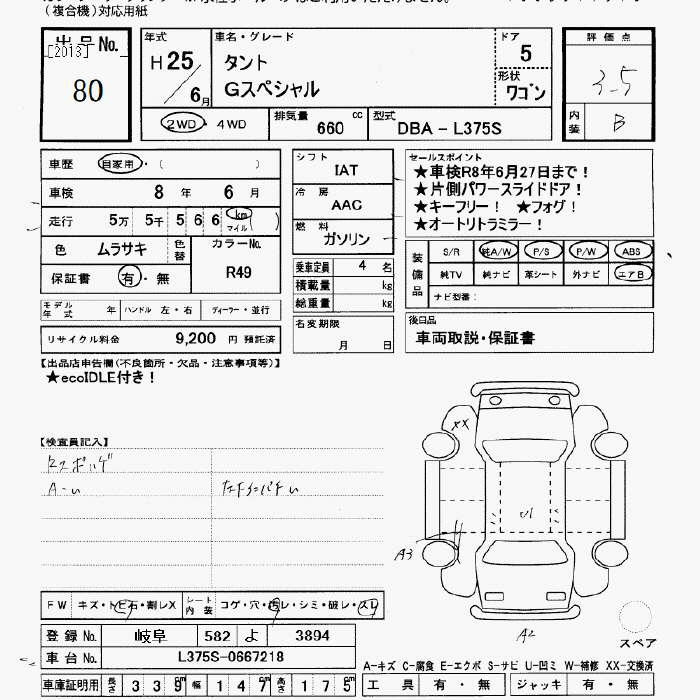 (複合機)対応用紙
出品No.
[2013]
80
年式
H25/6月
車名・グレード
タント
Gスペシャル
ドア
5
形状
ワゴン
評価点
3.5
内装
B
2WD・4WD
排気量 660 cc
型式 DBA-L375S
車歴 自家用・( )
車検 8年 6月
走行 5万 5千 5 6 6 km マイル ( )
色 ムラサキ 色替
カラーNo. R49
保証書 有・無
モデル年式 年 ハンドル 左・右 ディーラー・並行
リサイクル料金 9,200 円 預託済
シフト
IAT
冷房
AAC
燃料
ガソリン
乗車定員 4 名
積載量 kg
総重量 kg
名変期限
月 日
セールスポイント
★車検R8年6月27日まで!
★片側パワースライドドア!
★キーフリー! ★フォグ!
★オートリトラミラー!
装備品
S/R 純A/W P/S P/W ABS
純TV 純ナビ 革シート 外ナビ エアB
ナビ型番:
後日品
車両取説・保証書
【出品店申告欄(不良箇所・欠品・注意事項等)】
★ecoIDLE付き!
【検査員記入】
A-U
XX
U1
A3
A2
スペア
FW キズ・トビ石・割レX
シート内装 コゲ・穴・汚レ・シミ・破レ・スレ
登録No. 岐阜 582 よ 3894
車台No. L375S-0667218
車庫証明用 長さ 339cm 幅 147cm 高さ 175cm
A-キズ C-腐食 E-エクボ S-サビ U-凹ミ W-補修 XX-交換済
工具 有・無 ジャッキ 有・無